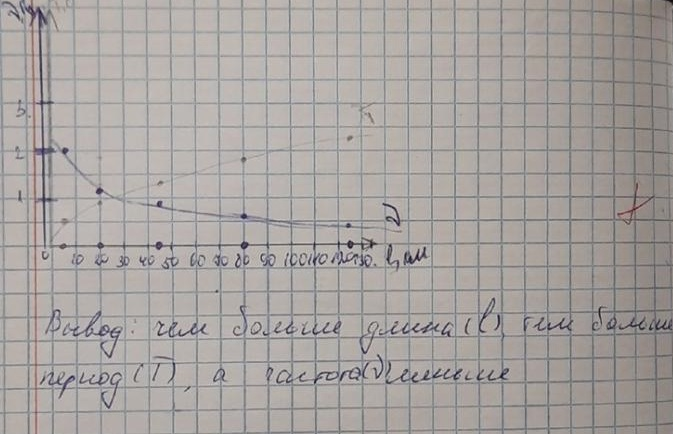 3
2
1
0 10 20 30 40 50 60 70 80 90 100 110 120 130 l, см
T
ν
Вывод: чем больше длина (l), тем больше
период (T), а частота (ν) меньше